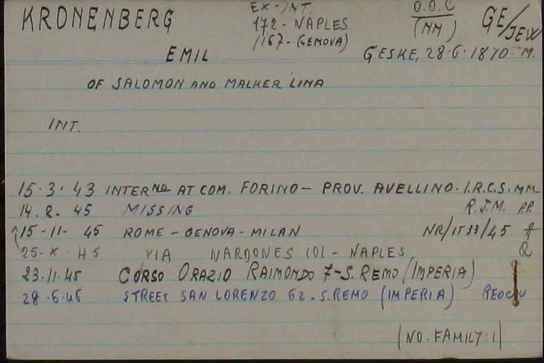 KRONENBERG
EX-INT.
172-NAPLES
1167-GENOVA)
O.O.C
(NN)
GE/JEW
EMIL
GESKE, 28.6.1870-M.
OF SALOMON AND MALKER LINA
INT.
15-3-43 INTERNED AT COM. FORINO - PROV. AVELLINO. I.R.C.S. MM
14.2.45 MISSING R.J.M. P.P.
15-11-45 ROME-GENOVA-MILAN NR/IT33/45
25-X-45 VIA NARDONES 101-NAPLES
23.11.45 CORSO ORAZIO RAIMONDO 7-S.REMO (IMPERIA)
28.6.46 STREET SAN LORENZO 62-S.REMO (IMPERIA)
(NO. FAMILY:1)